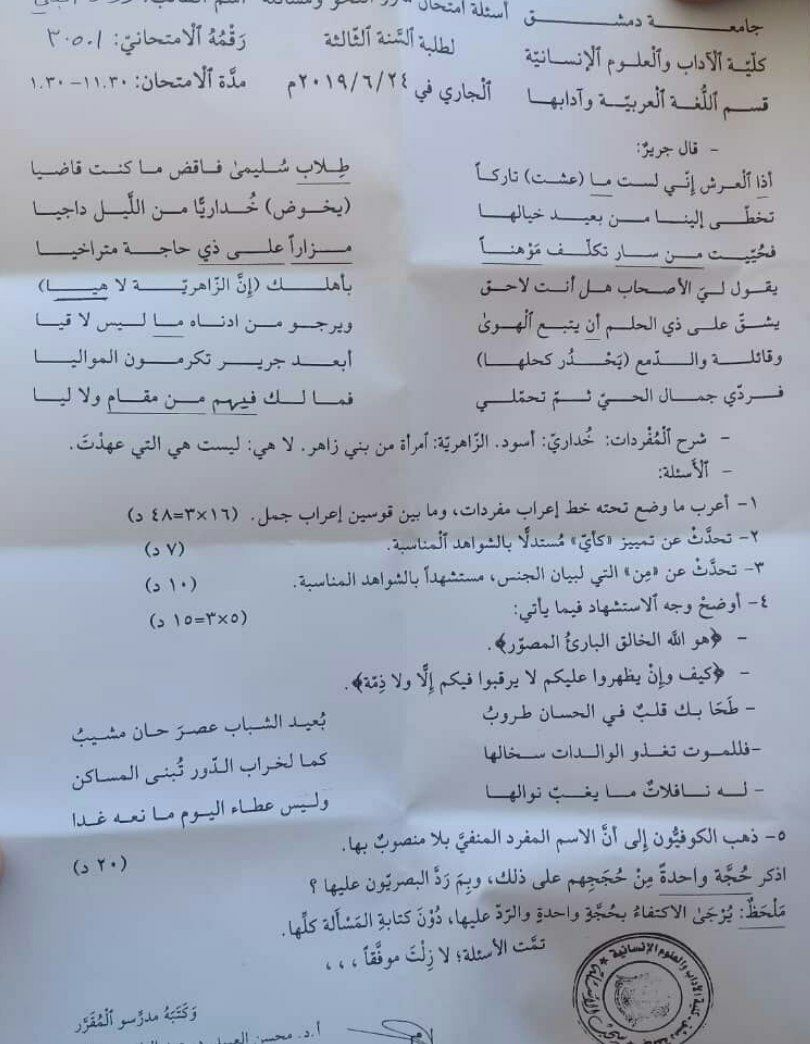 جامعـــة دمشـــق أسئلة امتحان
كليّـة الآداب والعلـوم الإنسـانيّة لطلبة السَّنة الثّالثة رَقْمُهُ الامتحانيّ: ٣٠٥٠١
قسـم اللُّغـة العربيّـة وآدابهـا الْجاري في ٢٠١٩/٦/٢٤م مدَّة الامتحان: ١١.٣٠-١.٣٠
- قال جريرٌ:
أذا الْعرش إنّي لست ما (عشت) تاركاً طِلاب سُليمىٰ فاقض ما كنت قاضيا
تخطّى إلينا من بعيد خيالها (يخوض) خُداريًّا من اللَّيل داجيا
فحُيّيت من سار تكلّف مَوْهناً مزاراً على ذي حاجة متراخيا
يقول ليَ الأصحاب هل أنت لاحق بأهلك (إنَّ الزّاهريّة لا هيا)
يشقّ على ذي الحلم أن يتبع الْهوىٰ ويرجو من ادناه ما ليس لا قيا
وقائلة والدّمع (يَحْدُر كحلها) أبعد جرير تكرمون المواليا
فردّي جمال الحيّ ثمّ تحمّلي فما لك فيهم من مقام ولا ليا
- شرح الْمُفْردات: خُداريّ: أسود. الزّاهريّة: امرأة من بني زاهر. لا هي: ليست هي التي عهدْتَ.
- الْأَسئلة:
١- أعرب ما وضع تحته خط إعراب مفردات، وما بين قوسين إعراب جمل. (١٦×٣=٤٨ د)
٢- تحدَّثْ عن تمييز «كأيّ» مُستدلًّا بالشواهد الْمناسبة. (٧ د)
٣- تحدَّثْ عن «مِن» التي لبيان الجنس، مستشهداً بالشواهد المناسبة. (١٠ د)
٤- أوضحْ وجه الاستشهاد فيما يأتي: (٥×٣=١٥ د)
- ﴿هو الله الخالق البارئُ المصوّر﴾.
- ﴿كيف وإنْ يظهروا عليكم لا يرقبوا فيكم إلًّا ولا ذِمّة﴾.
- طَحَا بك قلبٌ في الحسان طروبُ بُعيد الشباب عصرَ حان مشيبُ
-فللموت تغذو الوالدات سخالها كما لخراب الدّور تُبنى المساكن
- له نافلاتٌ ما يغبّ نوالها وليس عطاء اليوم ما نعه غدا
٥- ذهب الكوفيُّون إلى أنَّ الاسم المفرد المنفيَّ بلا منصوبٌ بها.
اذكر حُجَّة واحدةً مِنْ حُجَجِهم على ذلك، وبِمَ رَدَّ البصريّون عليها ؟ (٢٠ د)
مَلْحَظٌ: يُرْجَىٰ الاكتفاءُ بحُجَّةٍ واحدةٍ والرّدّ عليها، دُوْنَ كتابةِ المَسْألة كلِّها.
تمَّت الأسئلة؛ لا زِلْتَ موفَّقاً ، ، ،
وَكَتَبَهُ مدرِّسو الْمُقَرَّر
أ.د. محسن